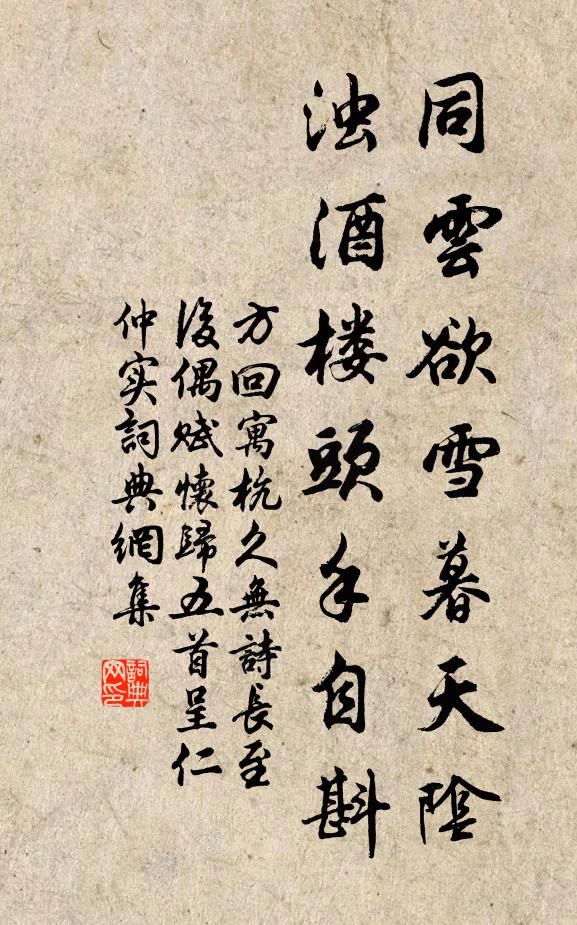 同雲欲雪暮天陰
浊酒楼頭手自斟
方回寓杭久無詩長至
後偶赋懷歸五首呈仁
仲实詞典網集
詞典
网印